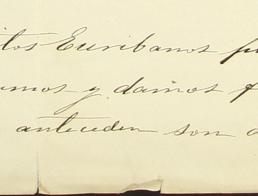 itos Escribanos pu
amos y damos f
anteceden son a